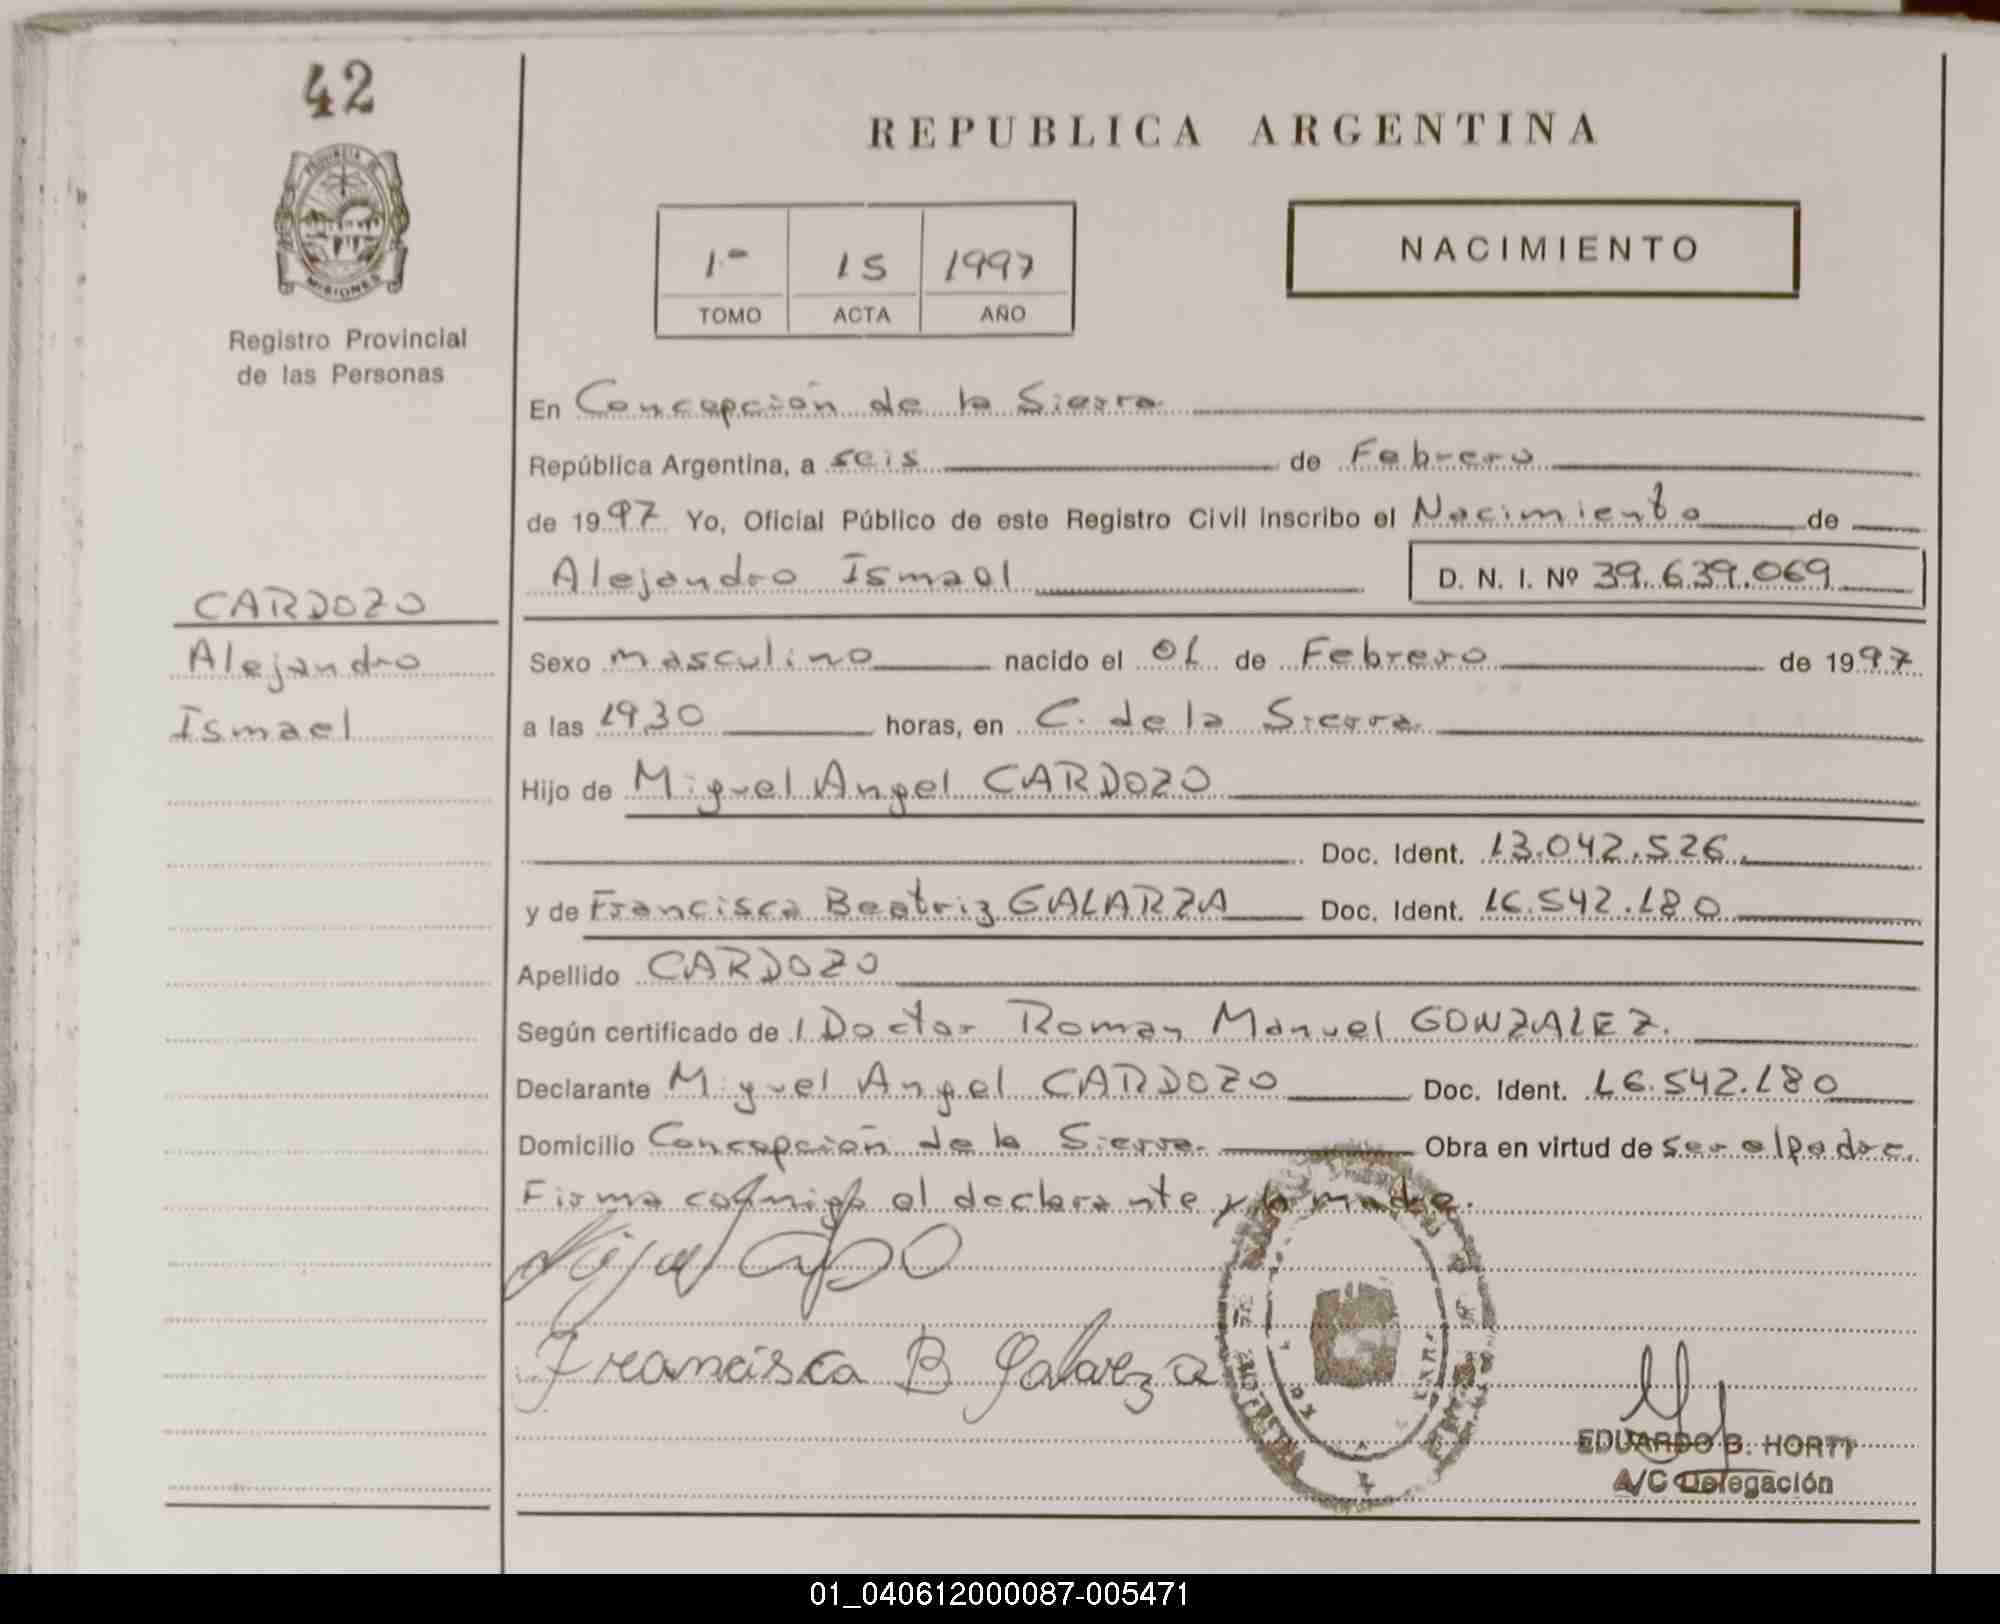 42
PROVINCIA DE
MISIONES
Registro Provincial
de las Personas
CARDOZO
Alejandro
Ismael
REPUBLICA ARGENTINA
1º 15 1997
TOMO ACTA AÑO
NACIMIENTO
En Concepción de la Sierra
República Argentina, a seis de Febrero
de 1997 Yo, Oficial Público de este Registro Civil inscribo el Nacimiento de
Alejandro Ismael D. N. I. Nº 39.639.069
Sexo masculino nacido el 01 de Febrero de 1997
a las 19,30 horas, en C. de la Sierra
Hijo de Miguel Angel CARDOZO
Doc. Ident. 13.042.526.
y de Francisca Beatriz GALARZA Doc. Ident. 16.542.180
Apellido CARDOZO
Según certificado de l Doctor Roman Manuel GONZALEZ.
Declarante Miguel Angel CARDOZO Doc. Ident. 16.542.180
Domicilio Concepción de la Sierra. Obra en virtud de ser el padre.
Firma conmigo el declarante y la madre.
Francisca B Galarza
EDUARDO B. HORTT
A/C Delegación
01_040612000087-005471